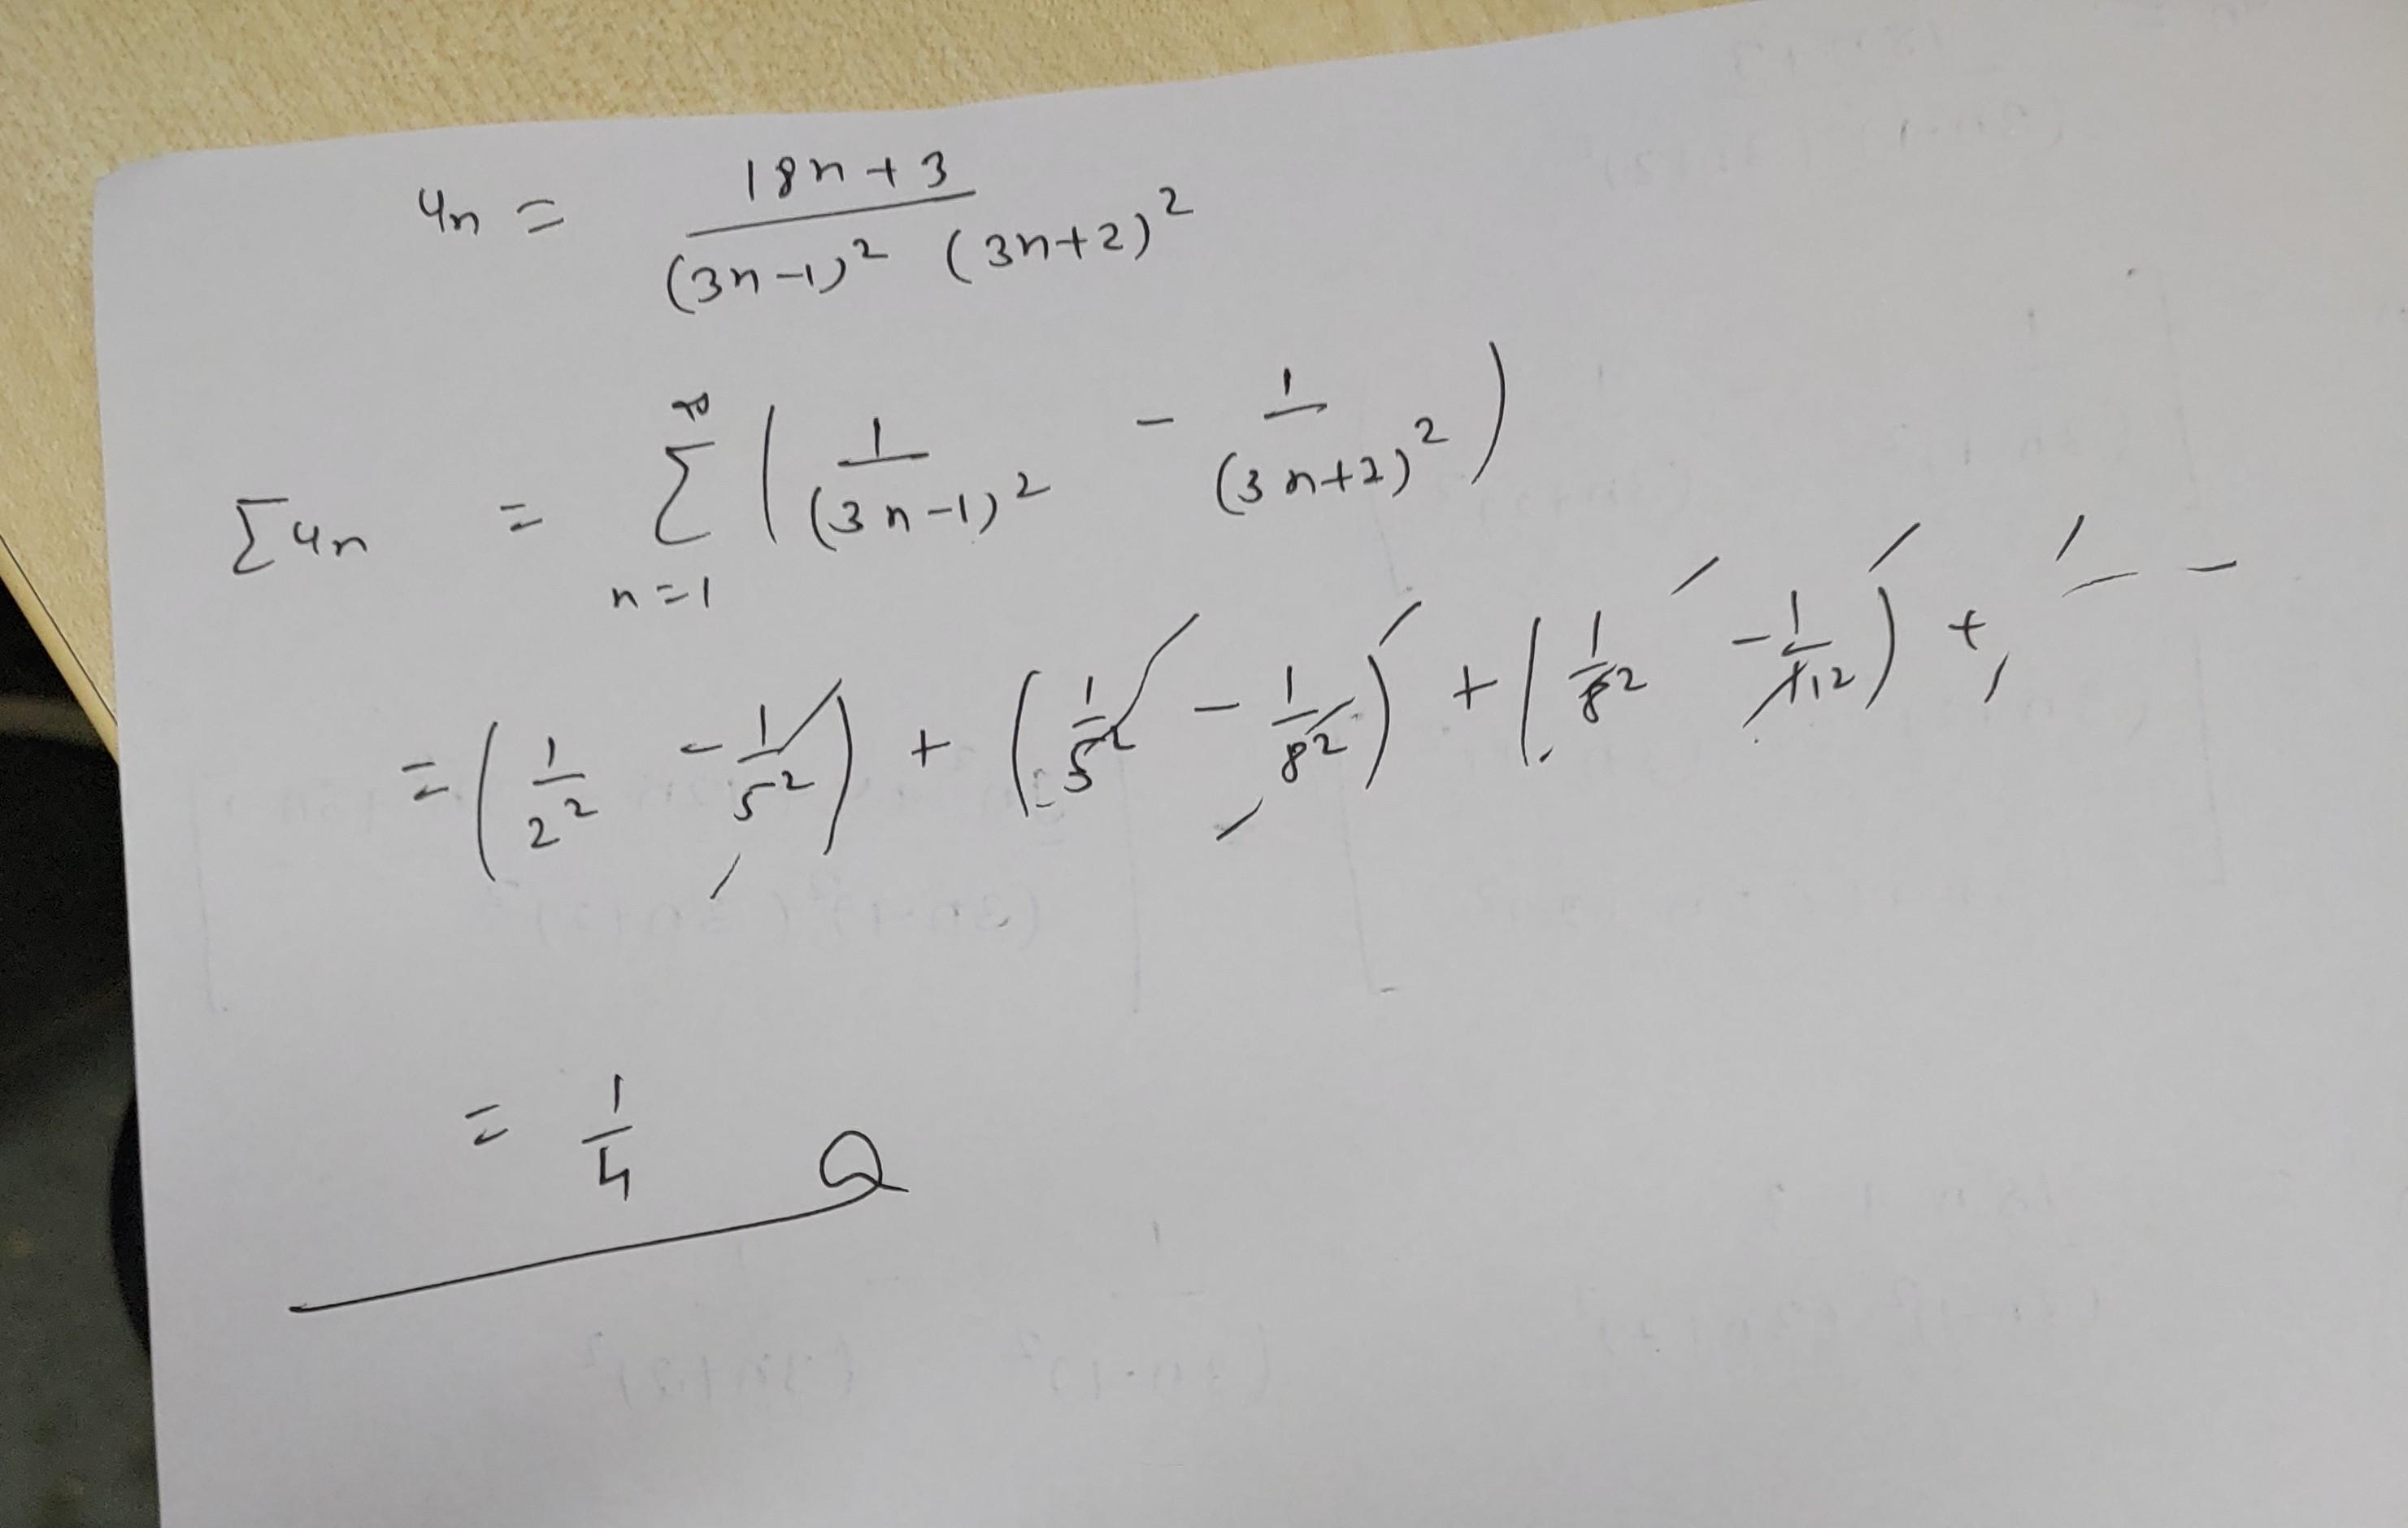 u_n = \frac{18n+3}{(3n-1)^2 (3n+2)^2}
\sum u_n = \sum_{n=1}^{\infty} \left( \frac{1}{(3n-1)^2} - \frac{1}{(3n+2)^2} \right)
= \left( \frac{1}{2^2} - \frac{1}{5^2} \right) + \left( \frac{1}{5^2} - \frac{1}{8^2} \right) + \left( \frac{1}{8^2} - \frac{1}{11^2} \right) + - -
= \frac{1}{4}